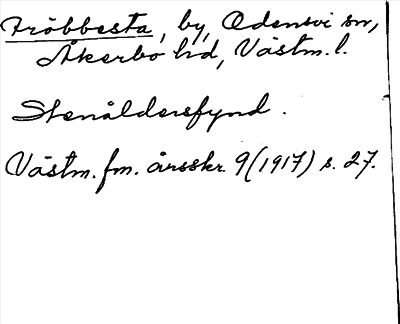 Fröbbesta, by, Odensvi sn,
Åkerbo hd, Västm. l.
Stenåldersfynd.
Västm. fm. årsskr. 9 (1917) s. 27.